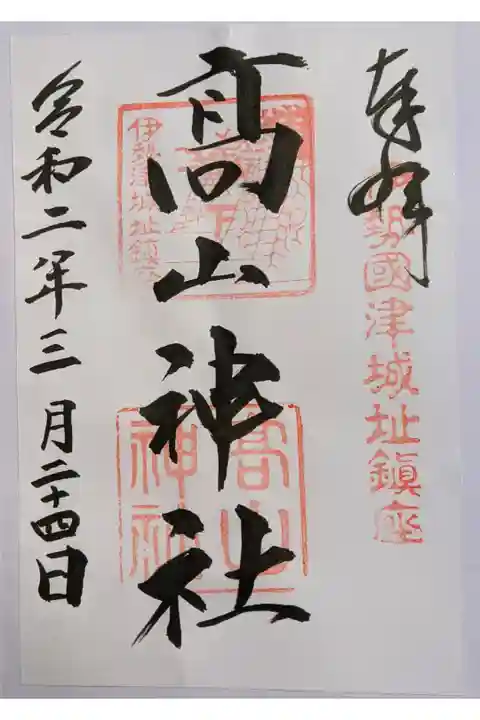 奉拝
伊勢國津城址鎮座
高山神社
伊勢津城址鎮座
高山
神社
令和二年三月二十四日